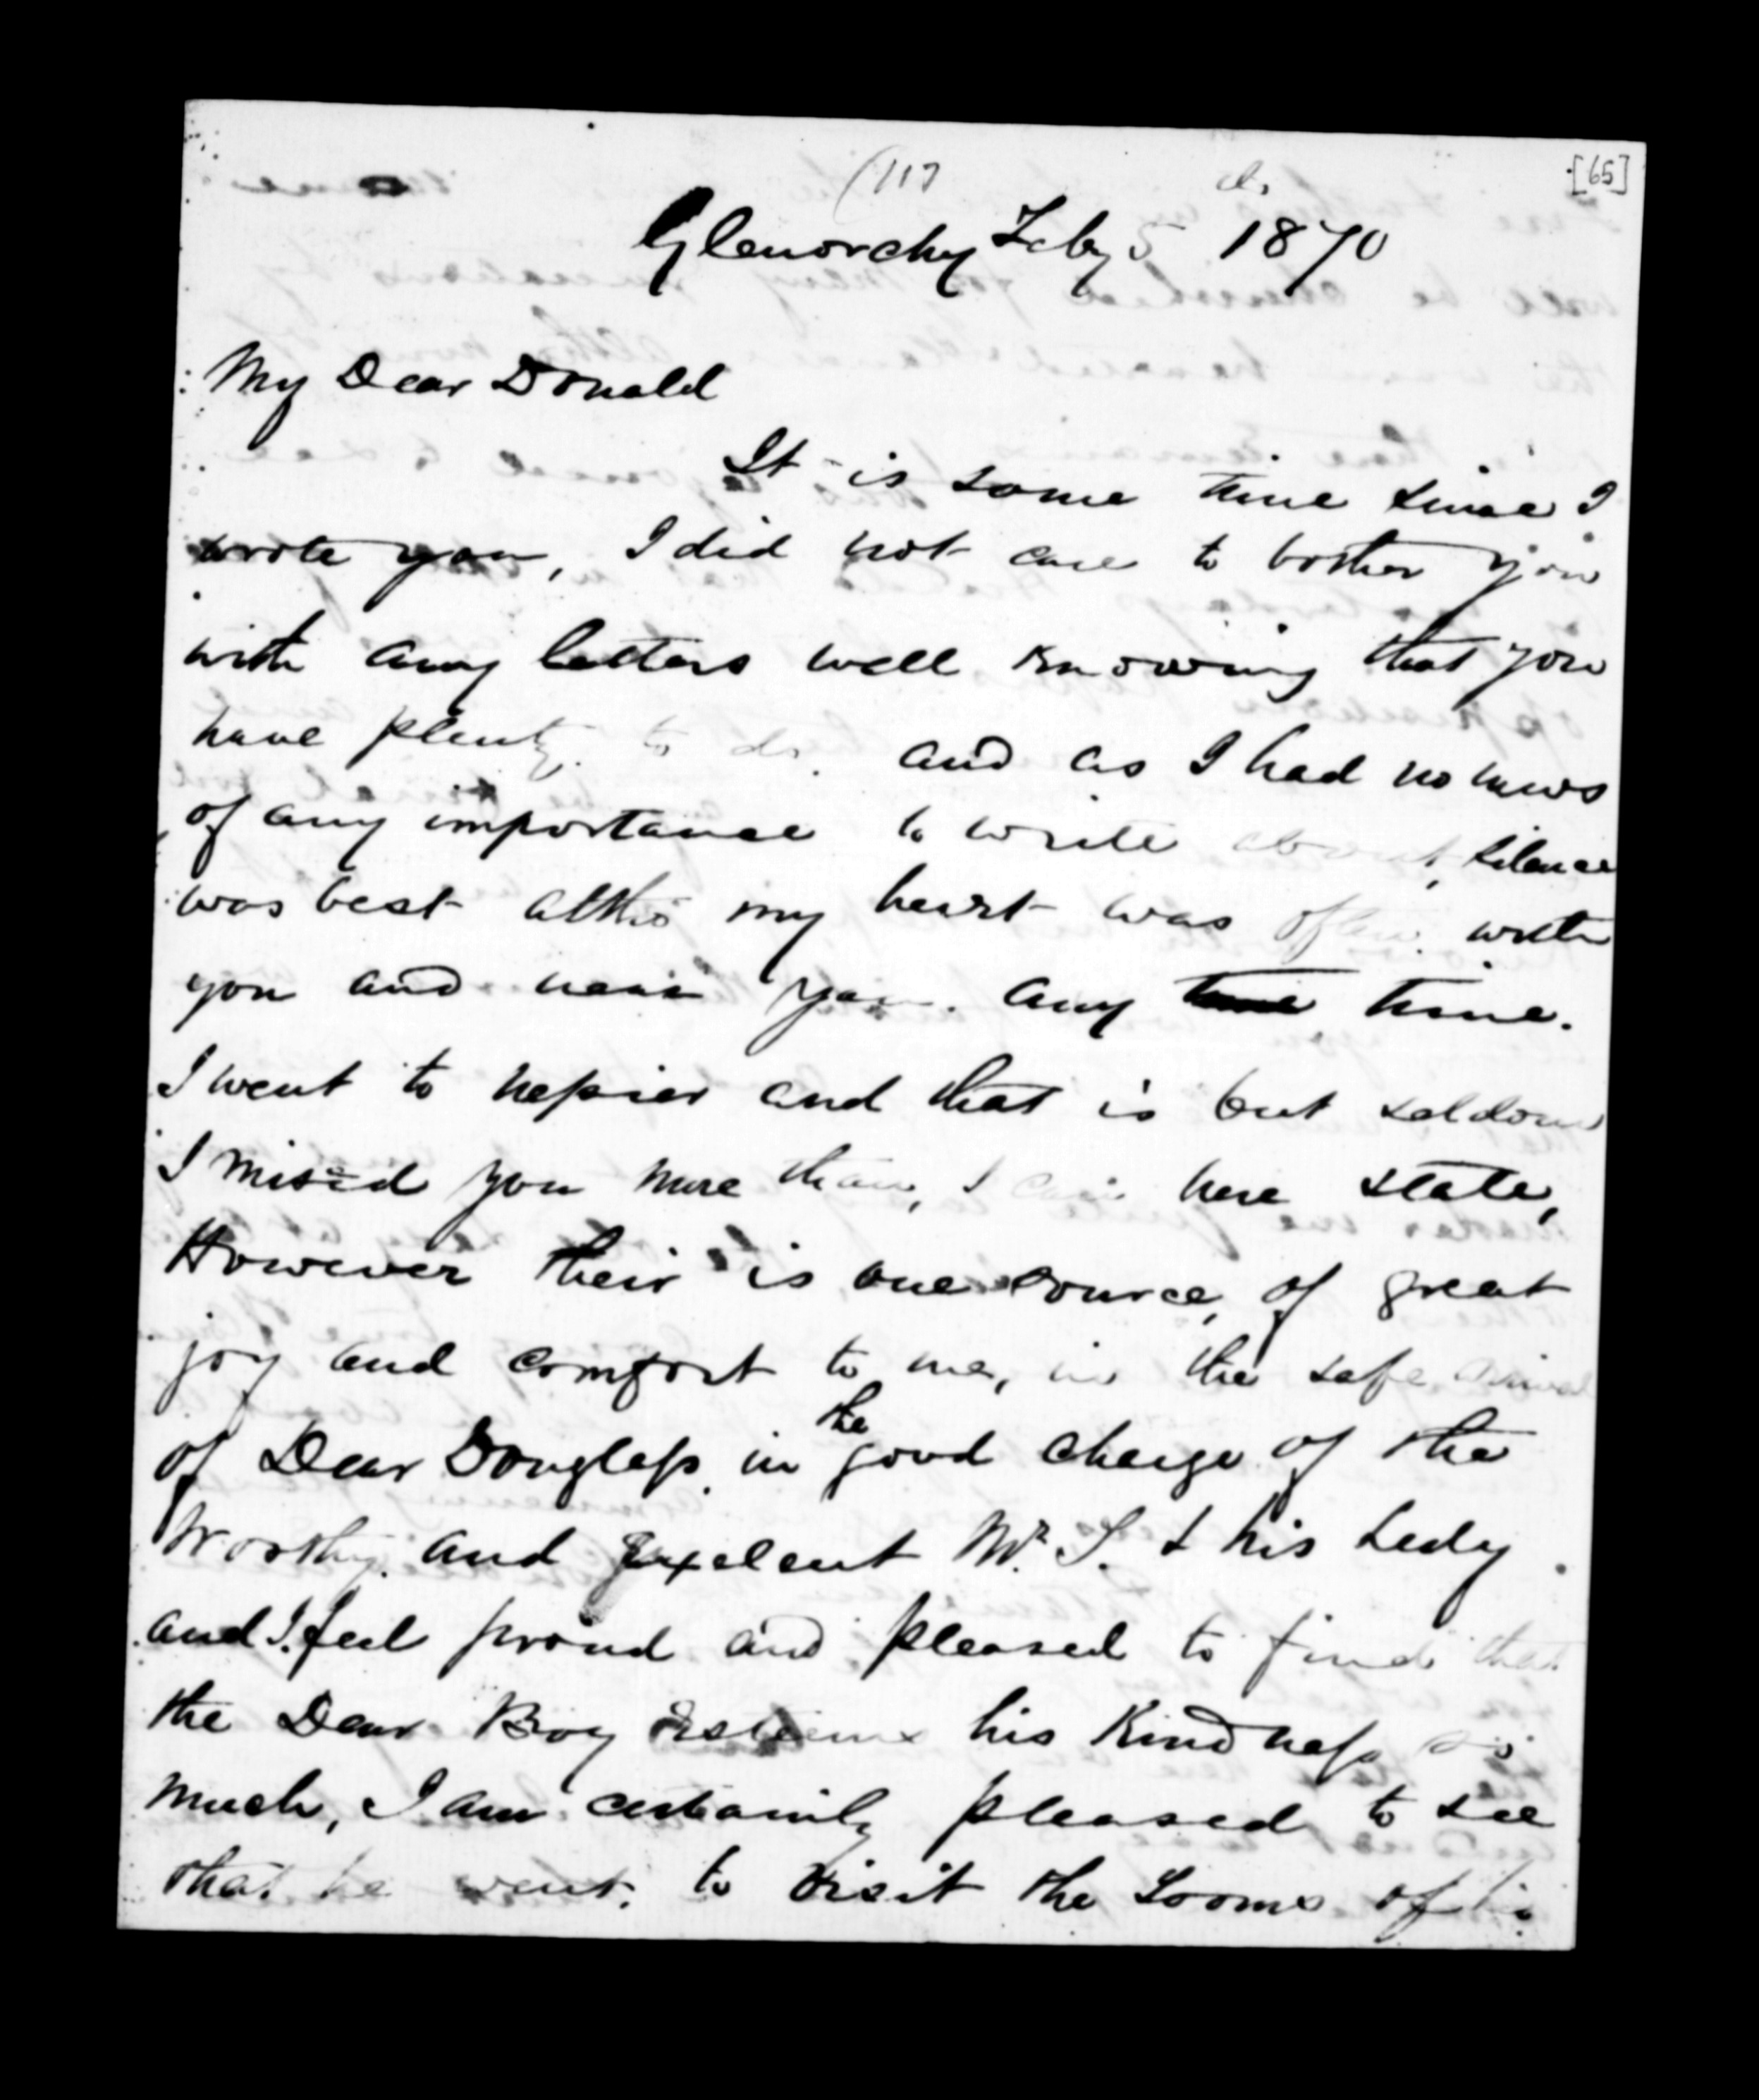 (117
[65]
Glenorchy Feby 5 1870
My Dear Donald
It is some time since I
wrote you, I did not care to bother you
with any letters well knowing that you
have plenty to do. and as I had no news
of any importance to write about, silence
was best altho my heart was often with
you and near you. any time.
I went to napier and that is but seldom
I missd you more than, I can here state,
However their is one source, of great
joy and comfort to me, in the safe arrival
of Dear Douglass. in the good charge of the
Worthy. and Exelent Mr. S. & his Lady
and I. feel proud and pleased to find that
the Dear Boy Esteems his Kindness so
much, I am certainly pleased to see
that he went. to visit the Looms of his